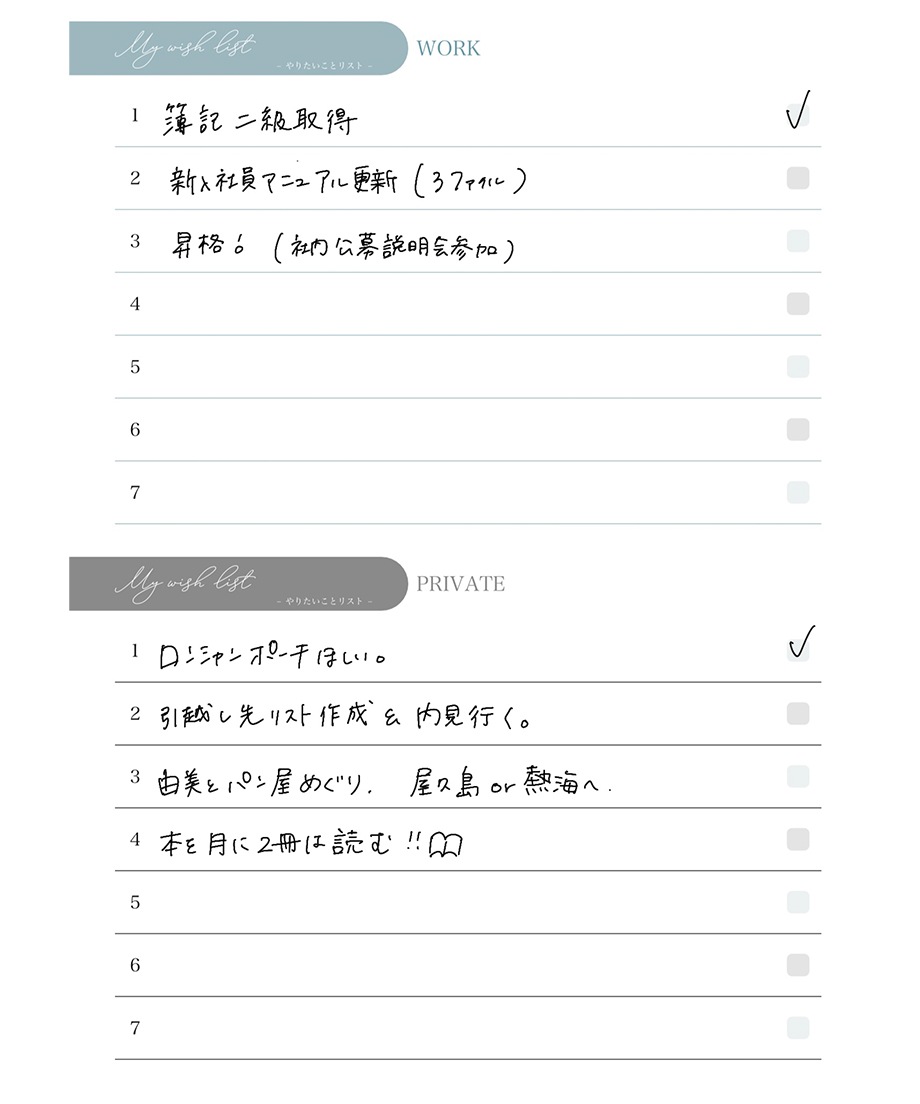 My wish list WORK
– やりたいことリスト –
1 簿記二級取得 ✓
2 新入社員マニュアル更新 (3ファイル)
3 昇格! (社内公募説明会参加)
4
5
6
7
My wish list PRIVATE
– やりたいことリスト –
1 ロンシャンポーチほしい。 ✓
2 引越し先リスト作成 & 内見行く。
3 由美とパン屋めぐり. 屋久島 or 熱海へ.
4 本を月に2冊は読む!!
5
6
7